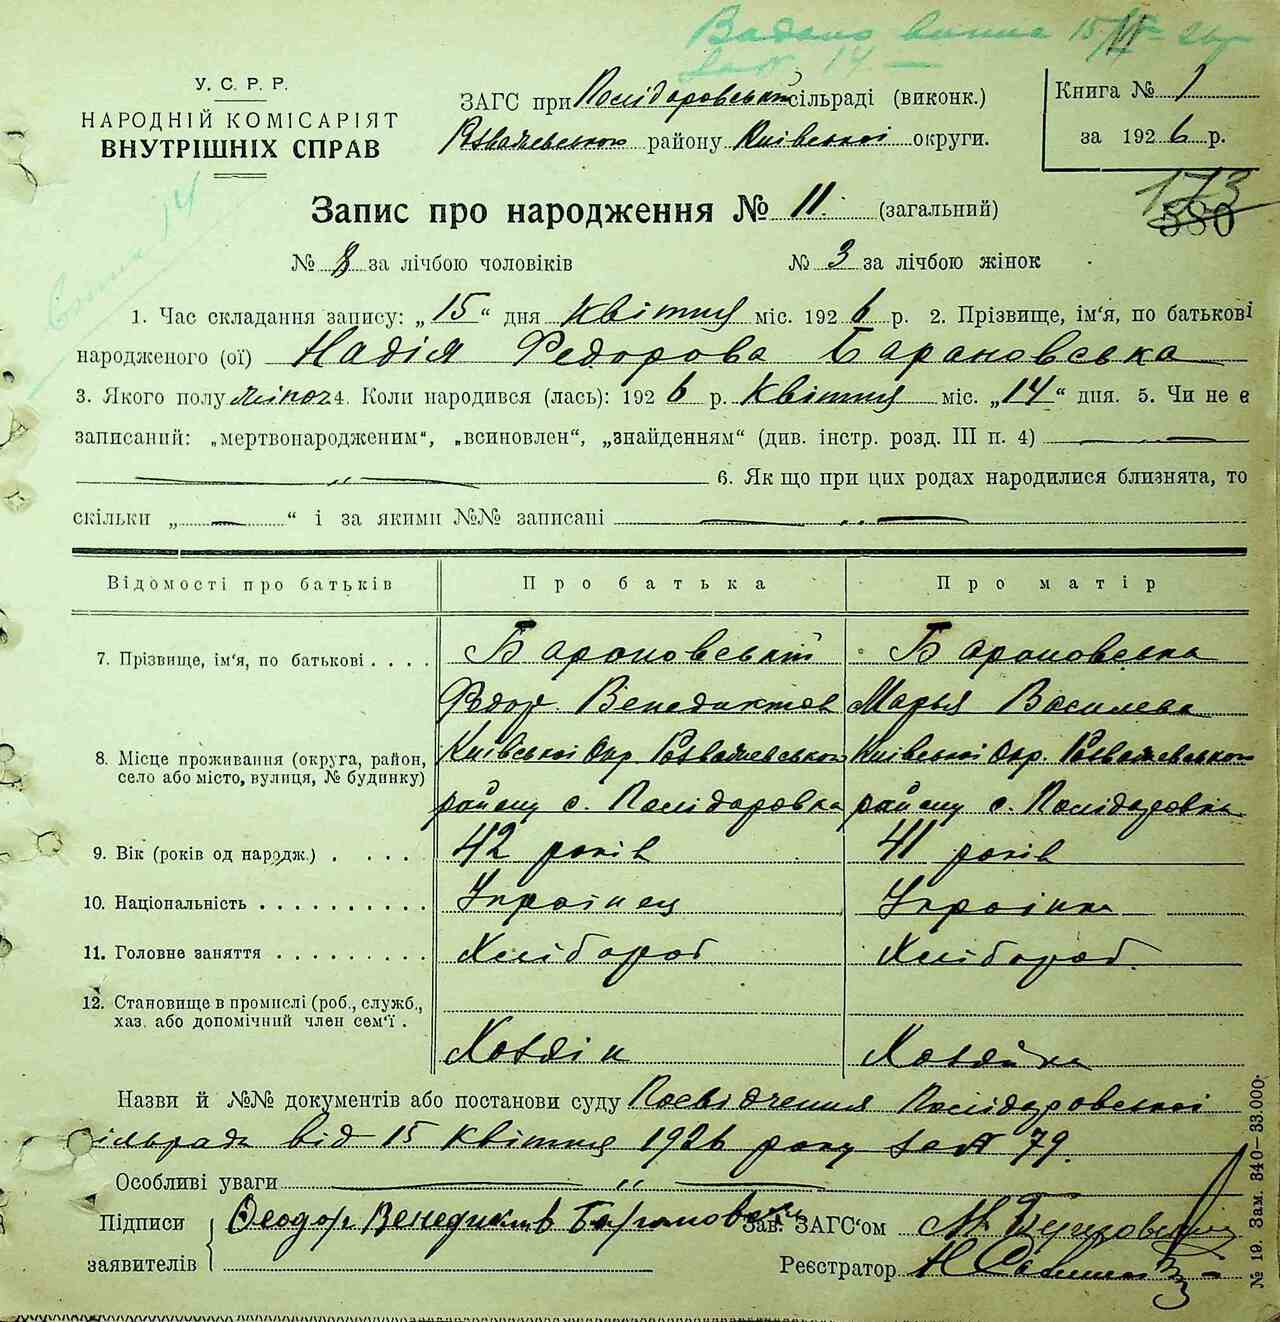 Видано витяг 15/IV-26 р
за № 14 —
У. С. Р. Р.
НАРОДНІЙ КОМІСАРІЯТ
ВНУТРІШНІХ СПРАВ
ЗАГС при Полідаровській сільраді (виконк.)
Розважевського району Київської округи.
Книга № 1
за 1926 р.
173
380
Запис про народження № 11. (загальний)
№ 8 за лічбою чоловіків № 3 за лічбою жінок
1. Час складання запису: „15“ дня Квітня міс. 1926 р. 2. Прізвище, ім'я, по батькові
народженого (ої) Надія Федорова Барановська
3. Якого полу жіноч 4. Коли народився (лась): 1926 р. Квітня міс. „14“ дня. 5. Чи не є
записаний: „мертвонародженим“, „всиновлен“, „знайденням“ (див. інстр. розд. III п. 4) — —
— „ — 6. Як що при цих родах народилися близнята, то
скільки „ — “ і за якими №№ записані — „ —
Відомості про батьків Про батька Про матір
7. Прізвище, ім'я, по батькові . . . . Барановський Барановська
Федор Венедиктов Марья Василева
8. Місце проживання (округа, район, село або місто, вулиця, № будинку) Київської Окр. Розважевського Київської Окр. Розважевського
району с. Полідаровка району с. Полідаровка
9. Вік (років од народж.) . . . . 42 років 41 років
10. Національність . . . . . . . . . . Українец Українка
11. Головне заняття . . . . . . . . . Хлібороб Хлібороб.
12. Становище в промислі (роб., служб., хаз. або допомічний член сем'ї . Хозяін Хозяйка
Назви й №№ документів або постанови суду Посвідчення Полідаровської
сільради від 15 квітня 1926 року за № 79.
Особливі уваги — „ —
Підписи Феодор Венедиктов Барановский Зав. ЗАГС'ом
заявителів Реєстратор
№ 19. Зам. 340—33.000.